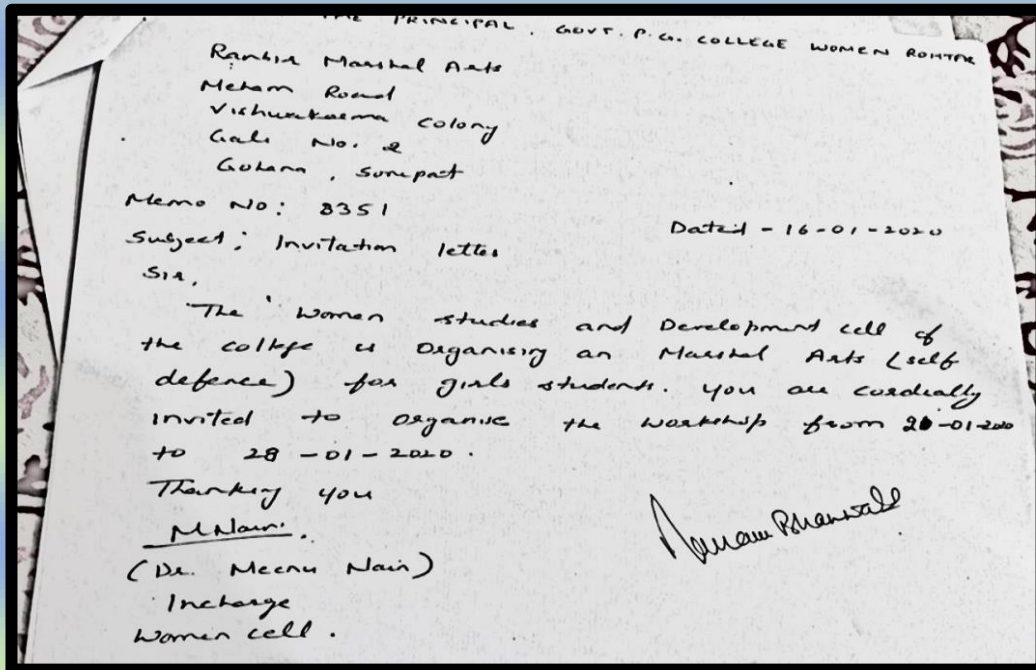 THE PRINCIPAL. GOVT. P.G. COLLEGE WOMEN ROHTAK
Ranbir Marshal Arts
Meham Road
Vishwakarma colony
Gali No. 2
Gohana, Sonipat
Memo No: 8351
Dated - 16-01-2020
Subject: Invitation letter
Sir,
The women studies and Development cell of
the college is organising an Marshal Arts (self
defence) for girls students. you are cordially
invited to organise the workship from -01-2020
to 28-01-2020.
Thanking you
MNain.
(Dr. Meenu Nain)
Incharge
Women cell.